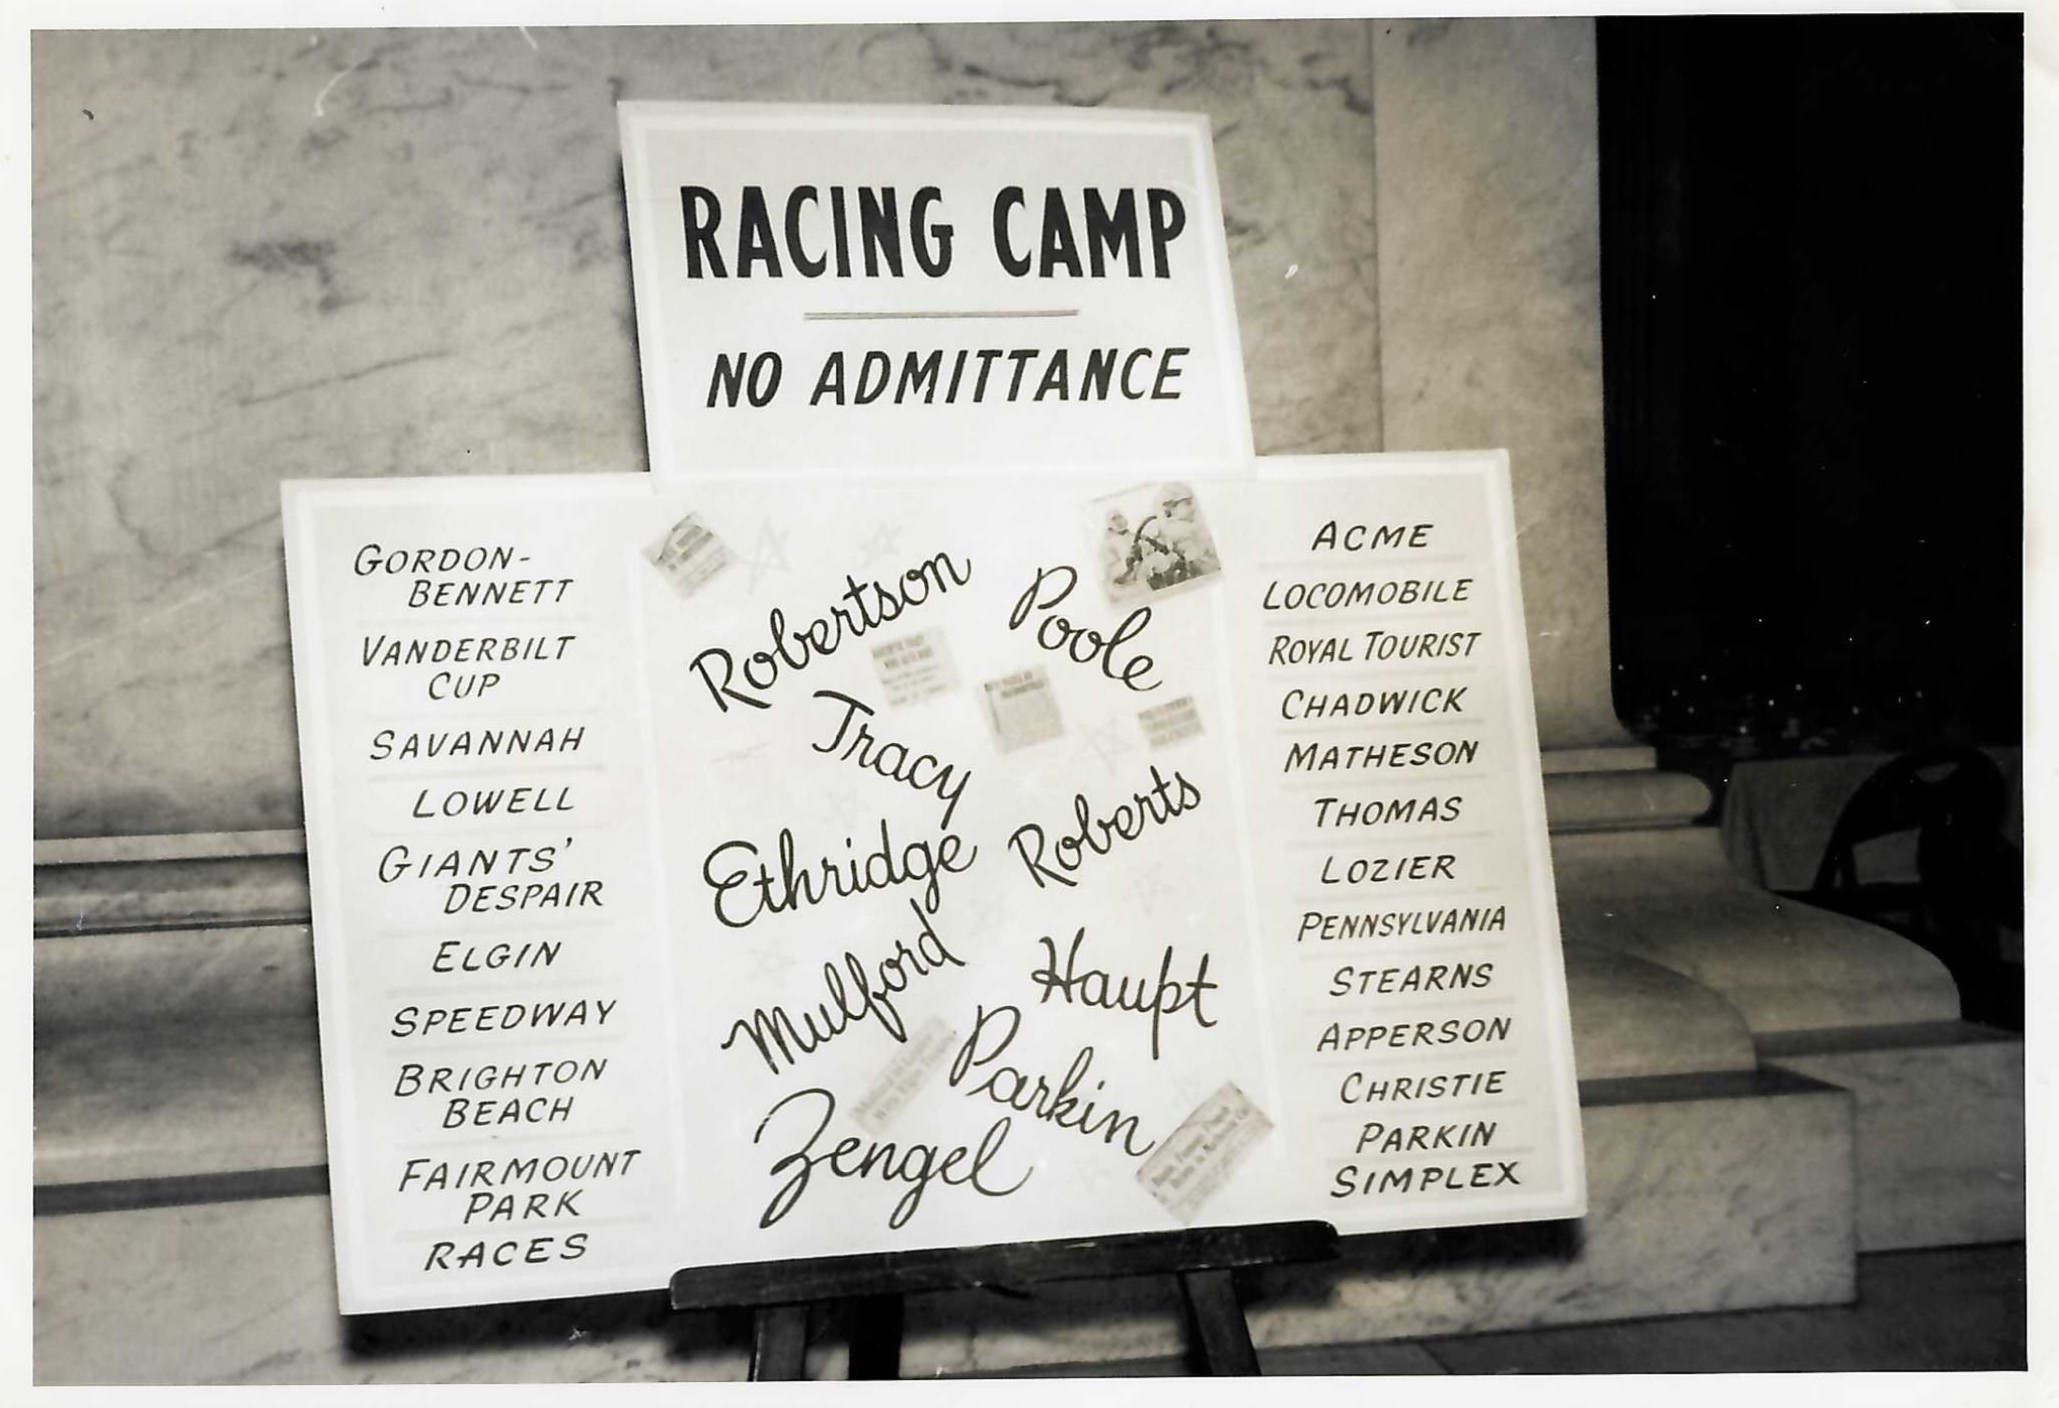 RACING CAMP
NO ADMITTANCE
GORDON-
BENNETT
VANDERBILT
CUP
SAVANNAH
LOWELL
GIANTS'
DESPAIR
ELGIN
SPEEDWAY
BRIGHTON
BEACH
FAIRMOUNT
PARK
RACES
Robertson
Poole
Tracy
Ethridge
Roberts
Mulford
Haupt
Parkin
Zengel
ACME
LOCOMOBILE
ROYAL TOURIST
CHADWICK
MATHESON
THOMAS
LOZIER
PENNSYLVANIA
STEARNS
APPERSON
CHRISTIE
PARKIN
SIMPLEX